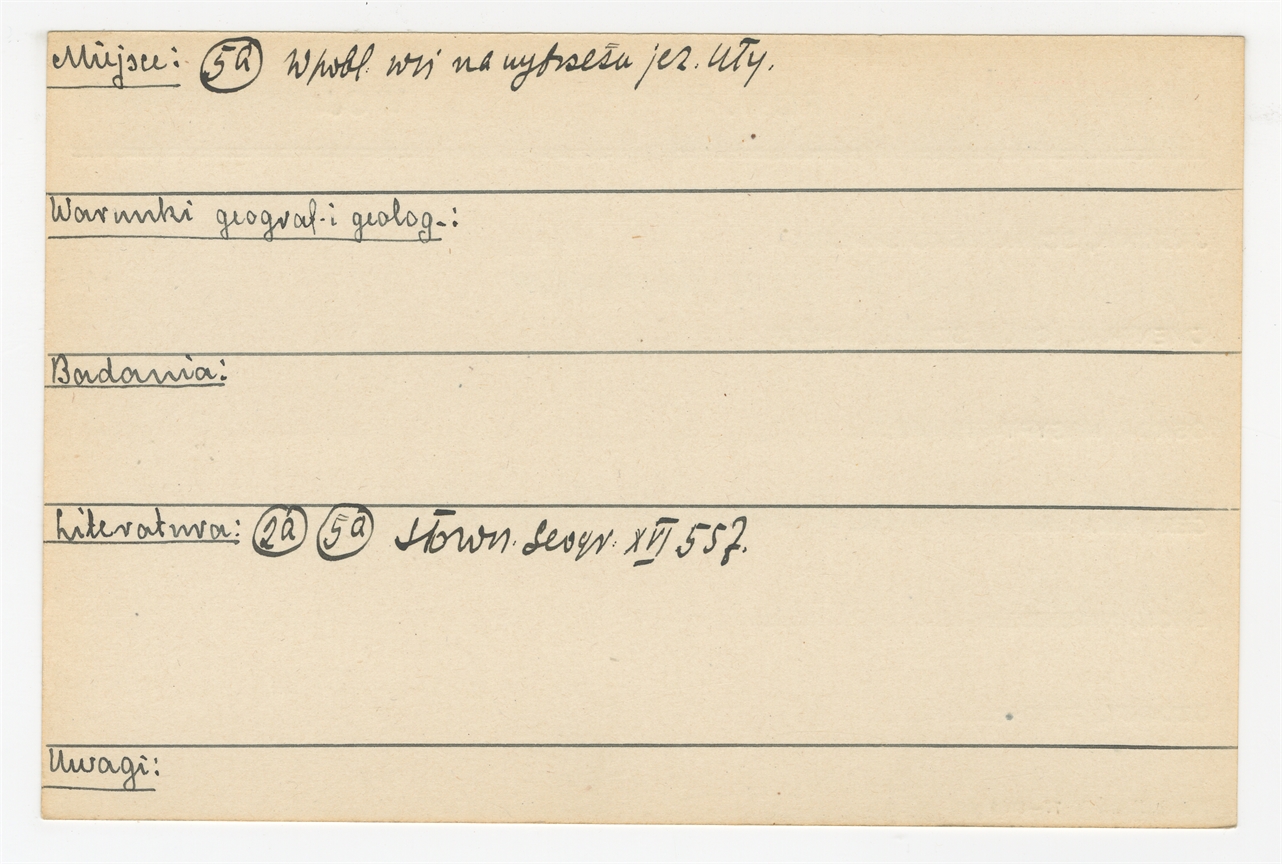 Miejsce: 5a W pobl. wsi na wybrzeżu jez. Uły.
Warunki geograf. i geolog.:
Badania:
Literatura: 2a 5a Słown. Geogr. XVI 557.
Uwagi: